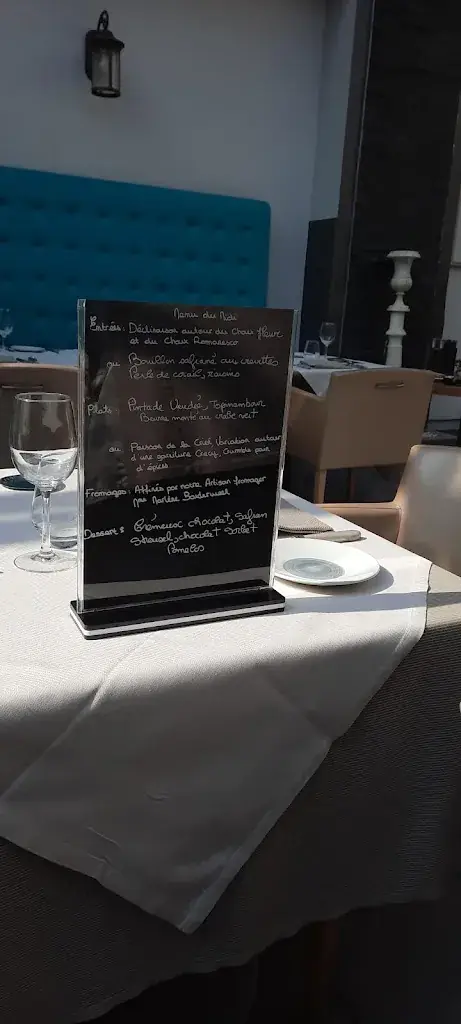 Menu du Midi
Entrées: Déclinaison autour du Chou fleur
et du Choux Romanesco
ou Bouillon safrané aux crevettes
Perle de corail, raviono
Plats: Pintade Vendée, Topinambour
Beurre monté au
ou Poisson de la Criée, Variation autour
d'une garniture Crecy, Crumble pain
d'épices
Fromages: Affinés par notre Artisan fromager
Mr
Desserts: Crémeux chocolat, Safran
Streusel, chocolat Sorbet
Pomelos